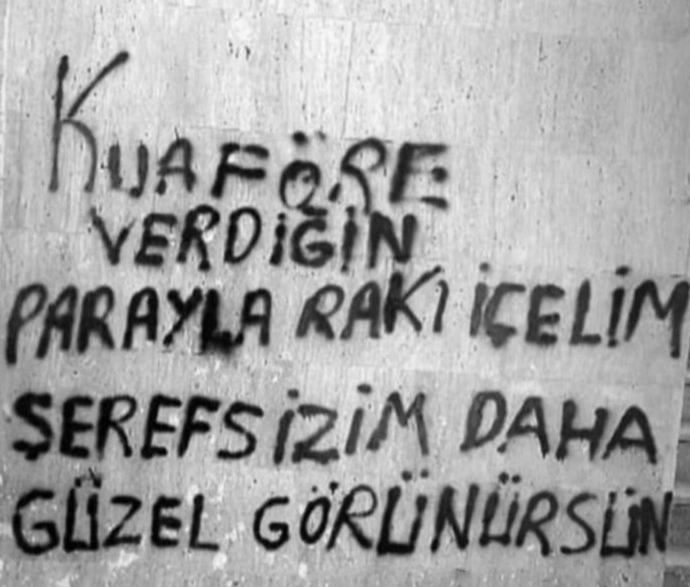 KUAFÖRE
VERDİGİN
PARAYLA RAKI İÇELİM
ŞEREFSİZİM DAHA
GÜZEL GÖRÜNÜRSÜN